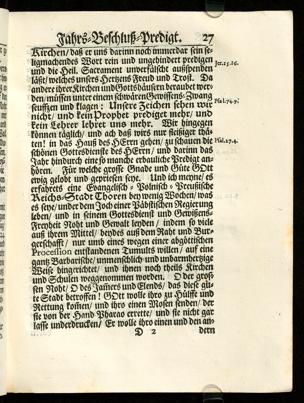 Jahrs-Beschluß-Predigt. 27
Kirchen/ daß er uns darinn noch immerdar sein se-
ligmachendes Wort rein und ungehindert predigen
und die Heil. Sacrament unverfälscht ausspenden
läst/ welches unsers Hertzens Freud und Trost. Da
andere ihrer Kirchen und Gotts-Häusern beraubet wer-
den/ müssen unter einem schwären Gewissens-Zwang
seufftzen und klagen: Unsere Zeichen sehen wir
nicht/ und kein Prophet prediget mehr/ und
kein Lehrer lehret uns mehr. Wir hingegen
können täglich/ und ach daß wirs nur fleißiger thä-
ten! in das Hauß des HErrn gehen/ zu schauen die
schönen Gottesdienste des HErrn/ und darinn das
Jahr hindurch eine so manche erbauliche Predigt an-
hören. Für welche große Gnade und Güte GOtt
ewig gelobt und gepriesen seye. Und ich meyne/ es
erfahrets eine Evangelisch-Polnisch-Preussische
Reichs-Stadt Thoren bey wenig Wochen/ was
es seye/ unter dem Joch einer Päbstischen Regierung
leben/ und in seinem Gottesdienst und Gewissens-
Freyheit Noht und Gewalt leyden/ indem so viele
auß ihrem Mittel/ beydes auß dem Raht und Bur-
gerschafft/ nur umb eines wegen einer abgöttischen
Procession entstandenen Tumults willen/ auf eine
gantz Barbarische/ unmenschlich und unbarmhertzige
Weise hingerichtet/ und ihnen noch theils Kirchen
und Schulen weggenommen worden. O der gros-
sen Noht/ O des Jamers und Elends/ das diese gu-
te Stadt betroffen! GOtt wolle ihro zu Hülffe und
Rettung komen/ und ihro einen Mosen senden/ der
sie von der Hand Pharao errette/ und sie nicht gar
lasse underdrucken/ Er wolle ihro einen und den an-
D 2 dern
Jer.15.16.
Psal.74.9.
Psal.27.4.